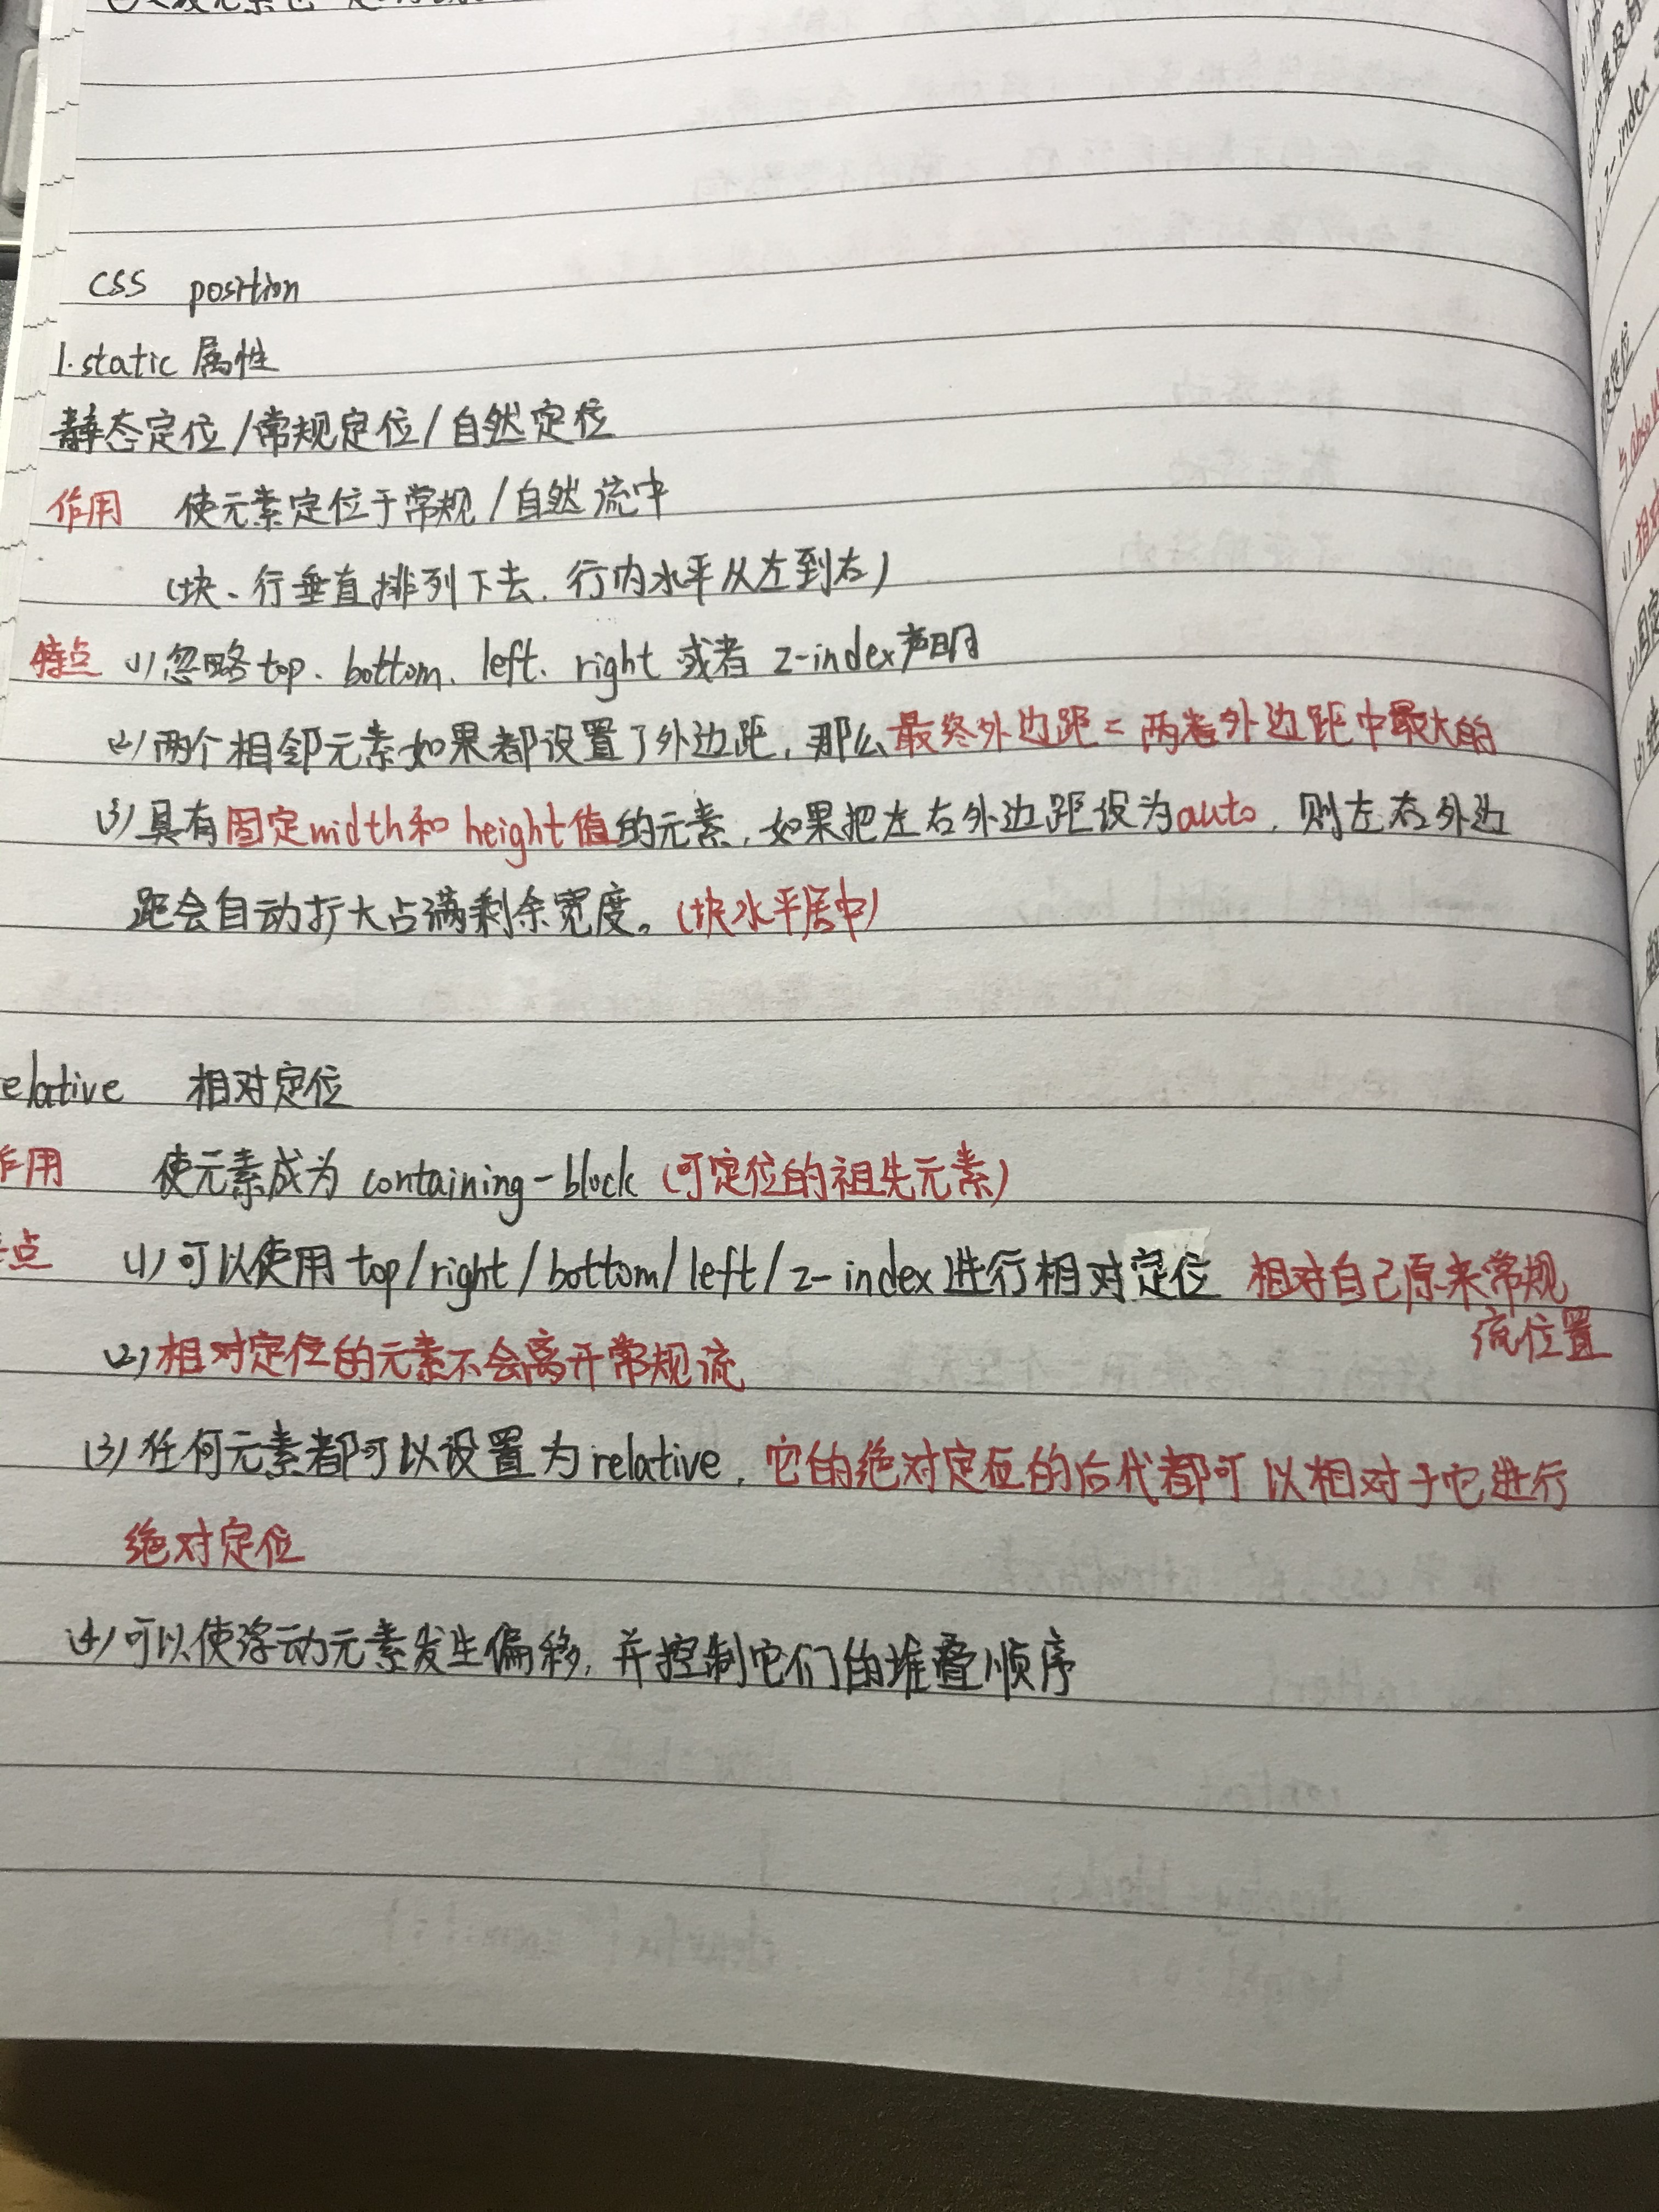 CSS position
1. static 属性
静态定位/常规定位/自然定位
作用 使元素定位于常规/自然流中
(块、行垂直排列下去,行内水平从左到右)
特点 (1)忽略top、bottom、left、right 或者 z-index声明
(2)两个相邻元素如果都设置了外边距,那么最终外边距=两者外边距中最大的
(3)具有固定width和height值的元素,如果把左右外边距设为auto,则左右外边
距会自动扩大占满剩余宽度。(块水平居中)
elative 相对定位
作用 使元素成为 containing-block (可定位的祖先元素)
点 (1)可以使用top/right/bottom/left/z-index进行相对定位 相对自己原来常规
流位置
(2)相对定位的元素不会离开常规流
(3)任何元素都可以设置为relative,它的绝对定位的后代都可以相对于它进行
绝对定位
(4)可以使浮动元素发生偏移,并控制它们的堆叠顺序
z-index